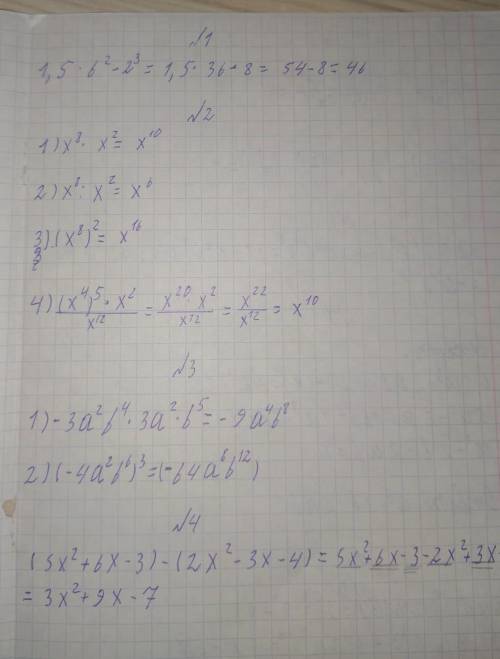 №1
1,5 · 6² - 2³ = 1,5 · 36 - 8 = 54 - 8 = 46
№2
1) x⁸ · x² = x¹⁰
2) x⁸ : x² = x⁶
3) (x⁸)² = x¹⁶
4) (x⁴)⁵ · x² / x¹² = x²⁰ · x² / x¹² = x²² / x¹² = x¹⁰
№3
1) -3a²b⁴ · 3a² · b⁵ = -9a⁴b⁸
2) (-4a²b⁶)³ = (-64a⁶b¹²)
№4
(5x² + 6x - 3) - (2x² - 3x - 4) = 5x² + 6x - 3 - 2x² + 3x
= 3x² + 9x - 7